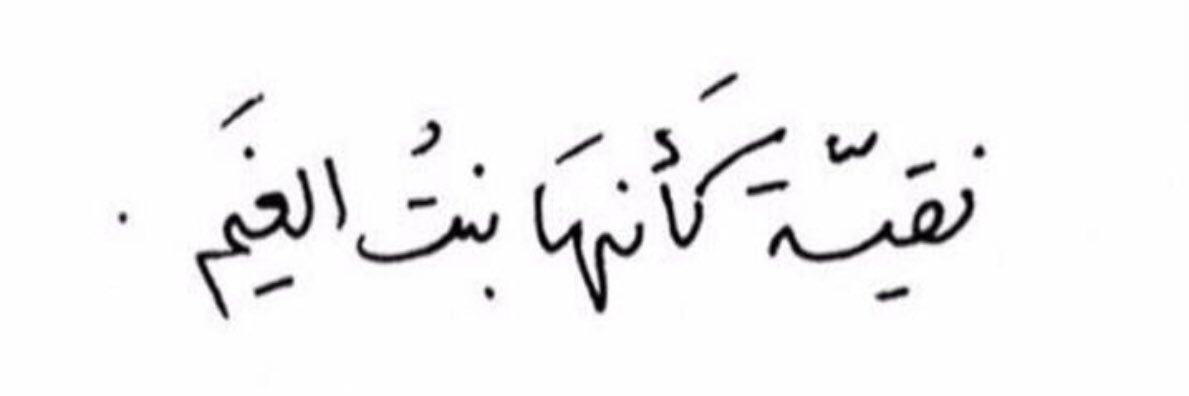 نقيّة كَأنهَا بنتُ الغيَم .